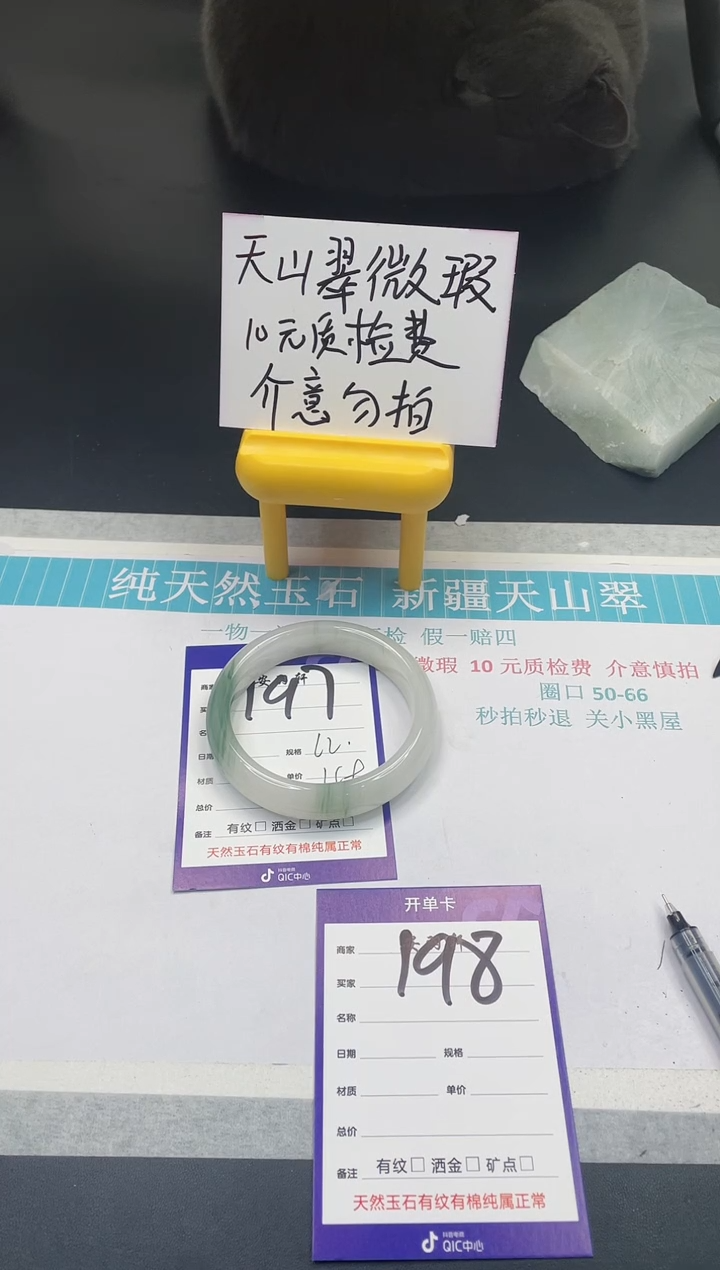 天山翠微瑕
10元质检费
介意勿拍
纯天然玉石 新疆天山翠
一物一 检 假一赔四
微瑕 10元质检费 介意慎拍
圈口 50-66
秒拍秒退 关小黑屋
197
商家
买
名
日期
规格 62.
材质
单价
总价
备注 有纹□ 洒金□ 矿点□
天然玉石有纹有棉纯属正常
抖音电商
QIC中心
开单卡
198
商家
买家
名称
日期 规格
材质 单价
总价
备注 有纹□ 洒金□ 矿点□
天然玉石有纹有棉纯属正常
抖音电商
QIC中心